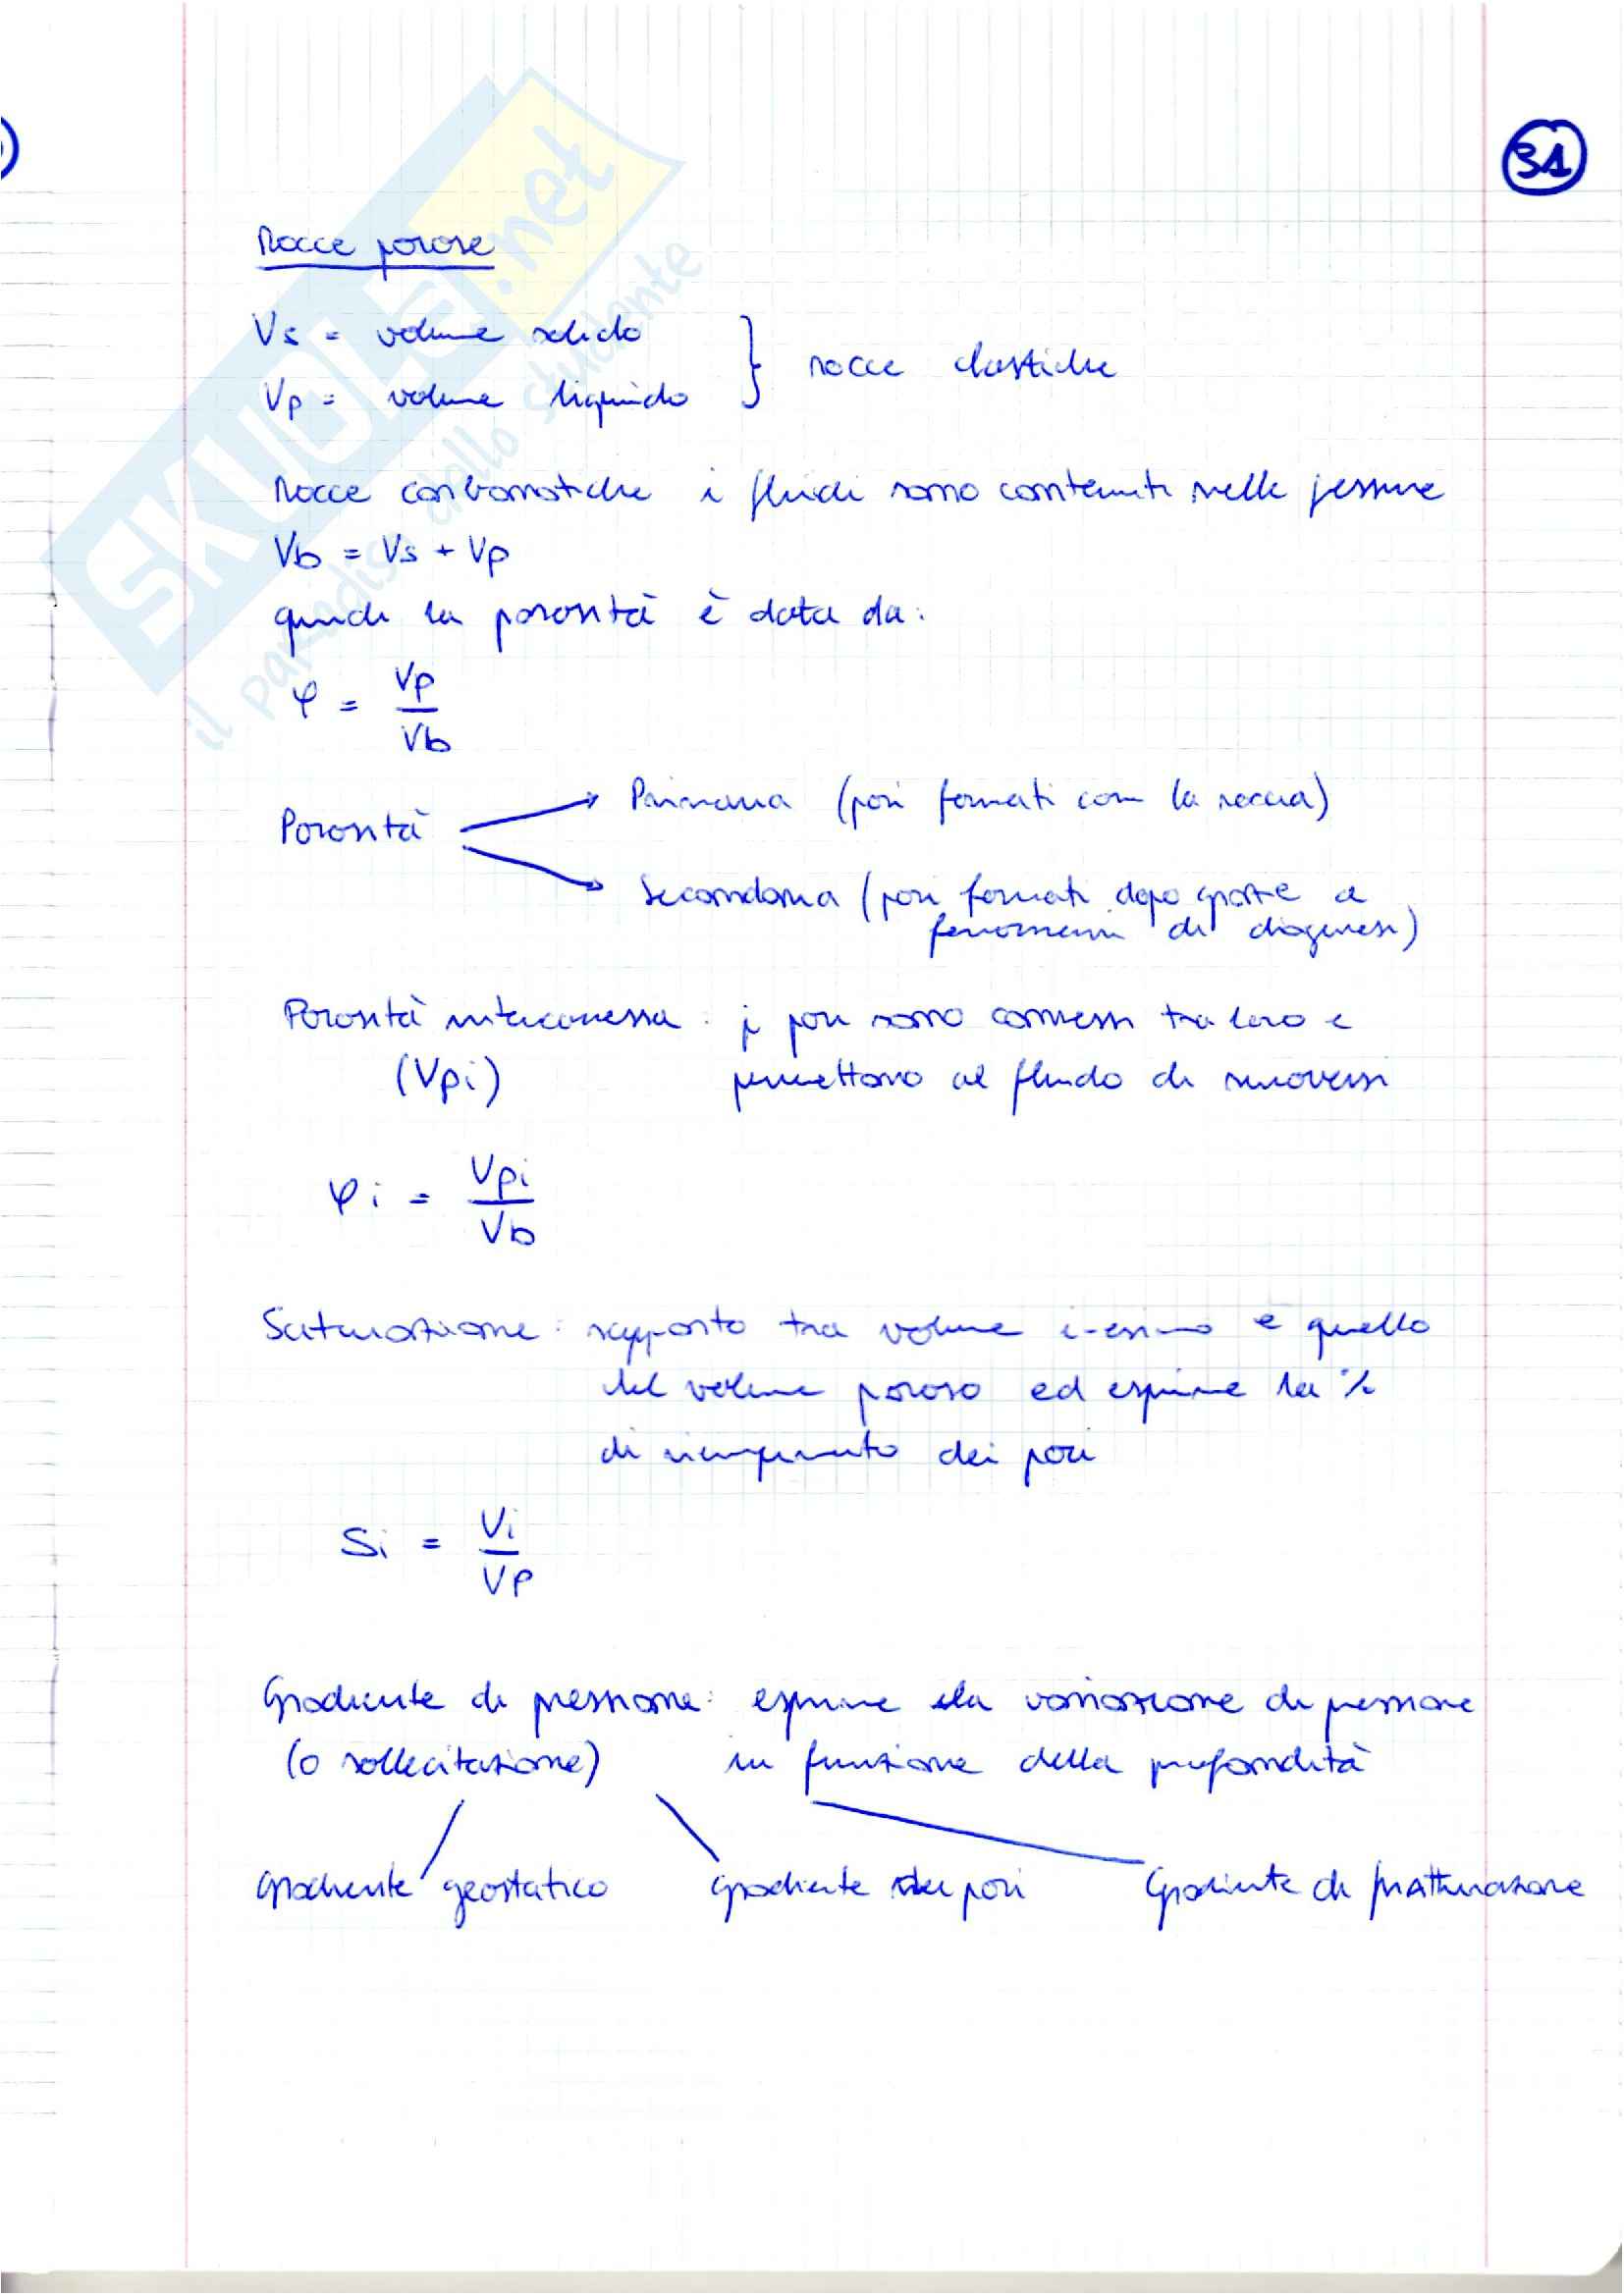 31
Rocce porose
Vs = volume solido
Vp = volume liquido } rocce clastiche
Rocce carbonatiche i fluidi sono contenuti nelle fessure
Vb = Vs + Vp
quindi la porosità è data da:
φ = Vp / Vb
Porosità → Primaria (pori formati con la roccia)
→ Secondaria (pori formati dopo grazie a
fenomeni di diagenesi)
Porosità interconnessa : i pori sono connessi tra loro e
(Vpi) permettono al fluido di muoversi
φi = Vpi / Vb
Saturazione : rapporto tra volume i-esimo e quello
del volume poroso ed esprime la %
di riempimento dei pori
Si = Vi / Vp
Gradiente di pressione: esprime la variazione di pressione
(o sollecitazione) in funzione della profondità
Gradiente geostatico Gradiente dei pori Gradiente di fratturazione
SKUOLa.net
il paradiso dello studente